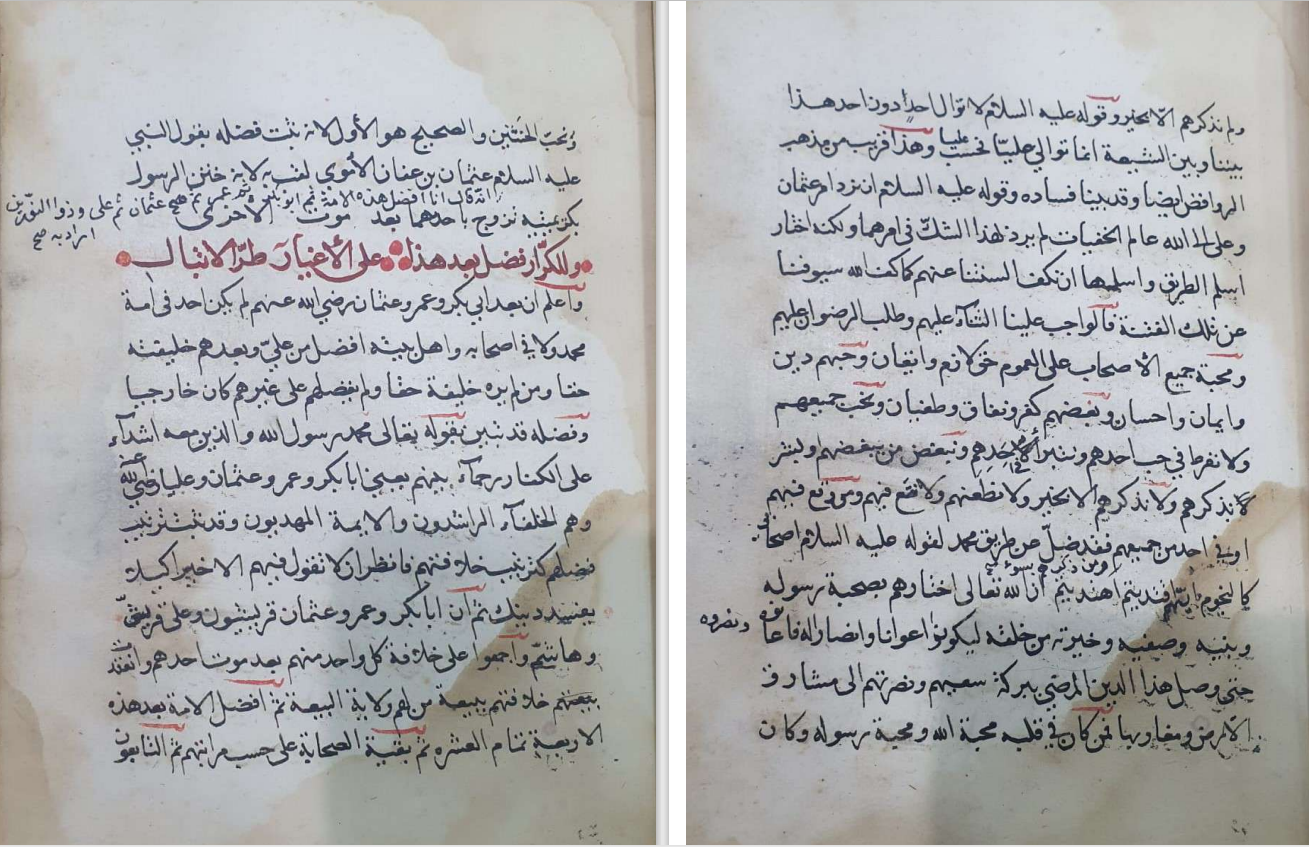 ولم نذكرهم الا بخير وقوله عليه السلام لا توال احدا دون احد هذا
بيننا وبين الشيعة انما توالي عليا فحسب وهذا قريب من مذهب
الروافض ايضا وقد بينا فساده وقوله عليه السلام ان نرد امر عثمان
وعلي الى الله عالم الخفيات لم يرد لهذا الشك في امرهما ولكنه اختار
اسلم الطريق واسلمها ان نكف السنتنا عنهم كما كف الله سيوفنا
عن تلك الفتنة فالواجب علينا الثناء عليهم وطلب الرضوان عليهم
ومحبة جميع الاصحاب على العموم حق لازم وايقان وحبهم دين
وايمان واحسان وبغضهم كفر ونفاق وطغيان ونحب جميعهم
ولا نفرط في حب احدهم ولا نتبرأ من احدهم ونبغض من يبغضهم وبشر
لا نذكرهم ولا نذكرهم الا بخير ولا نطعنهم ولا نقع فيهم ومن وقع فيهم
او في احد من جميعهم فقد ضل عن طريق محمد لقوله عليه السلام اصحابي
ومن ذكرهم بسوء
كالنجوم بايهم اقتديتم اهتديتم ان الله تعالى اختارهم بصحبة رسوله
ونبيه وصفيه وخيرته من خلقه ليكونوا اعوانا وانصارا له فاعانوه
ونصروه
حتى وصل هذا الدين المرضي ببركة سعيهم ونصرتهم الى مشارق
الارض ومغاربها فمن كان في قلبه محبة الله ومحبة رسوله وكان
ونحب الختنين والصحيح هو الاول لانه ثبت فضله بقول النبي
عليه السلام عثمان بن عفان الاموي لقب به لانه ختن الرسول
بكريمتيه تزوج باحدهما بعد موت الاخرى
انه قال انا افضل هذه الامة ثم ابو بكر ثم عمر ثم عثمان ثم علي وذو النورين
اراد به صح
وللكرار فضل بعد هذا على الاغيار طرا لا تبال
واعلم ان بعد ابي بكر وعمر وعثمان رضي الله عنهم لم يكن احد في امة
محمد ولا في اصحابه واهل بيته افضل من علي وبعدهم خليفته
حقا ومن لم يره خليفة حقا ولم يفضلهم على غيرهم كان خارجيا
وفضله قد تبين بقوله تعالى محمد رسول الله والذين معه اشداء
على الكفار رحماء بينهم يعني ابا بكر وعمر وعثمان وعليا رضي الله عنهم
وهم الخلفاء الراشدون والايمة المهديون وقد ثبت ترتيب
فضلهم كترتيب خلافتهم فانظر ان لا تقول فيهم الا خيرا كيلا
يفسد دينك ثم ان ابا بكر وعمر وعثمان قرشيون وعلي قريشي
وهاشمي واجمعوا على خلافة كل واحد منهم بعد موت احدهم وانعقدت
بيعتهم خلافتهم ببيعة من لهم ولاية البيعة ثم افضل الامة بعد هذه
الاربعة تمام العشره ثم بقية الصحابة على حسب مراتبهم ثم التابعون